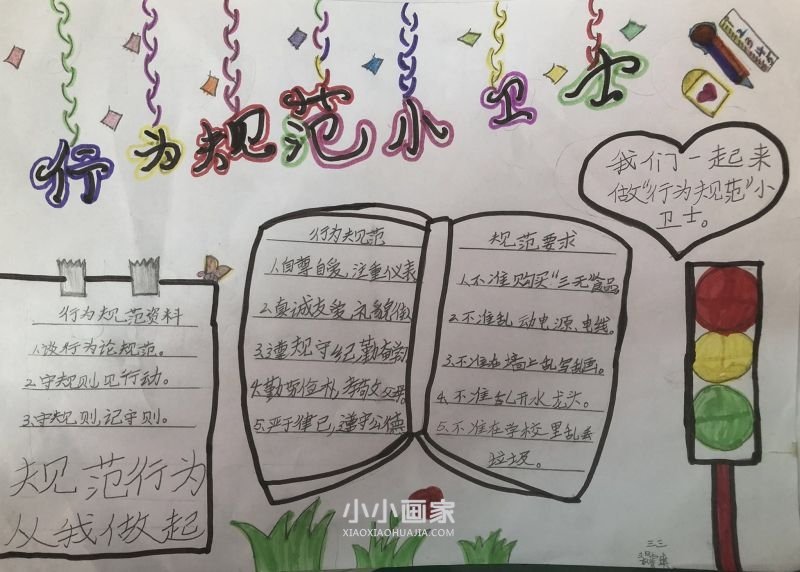 行为规范小卫士
我们一起来
做“行为规范”小
卫士。
行为规范
1.自尊自爱，注重仪表
2.真诚友爱，礼貌待
3.遵规守纪，勤奋学
4.勤劳俭朴，孝敬父母
5.严于律己，遵守公德
规范要求
1.不准购买“三无”食品
2.不准乱动电源、电线。
3.不准在墙上乱写乱画。
4.不准乱开水龙头。
5.不准在学校里乱丢
垃圾。
行为规范资料
1.谈行为论规范。
2.守规则见行动。
3.守规则，记守则。
规范行为
从我做起
小小画家
XIAOXIAOHUAJIA.COM
三三